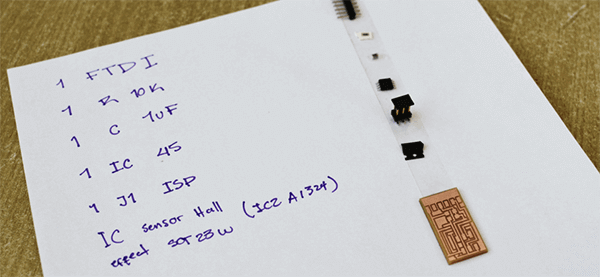 1 FTDI
1 R 10K
1 C 1uF
1 IC 45
1 J1 ISP
IC sensor Hall (IC2 A1324)
effect SOT23W